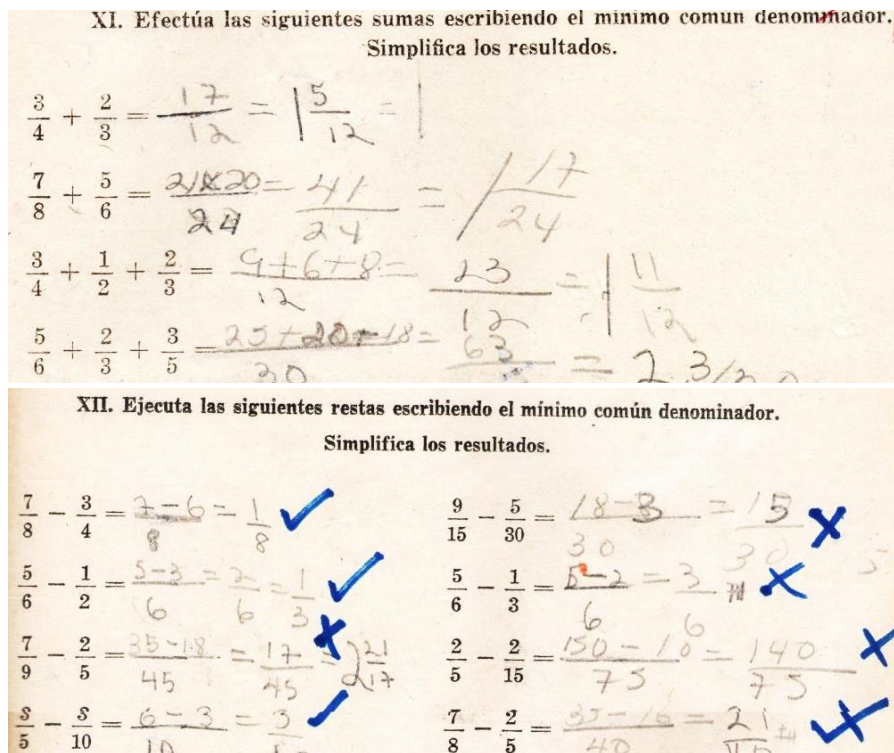 XI. Efectúa las siguientes sumas escribiendo el mínimo común denominador.
Simplifica los resultados.
3/4 + 2/3 = 17/12 = 1 5/12 =
7/8 + 5/6 = 21+20/24 = 41/24 = 1 17/24
3/4 + 1/2 + 2/3 = 9+6+8/12 = 23/12 = 1 11/12
5/6 + 2/3 + 3/5 = 25+20+18/30 = 63 = 2 3/30
XII. Ejecuta las siguientes restas escribiendo el mínimo común denominador.
Simplifica los resultados.
7/8 − 3/4 = 7−6/8 = 1/8 ✓
5/6 − 1/2 = 5−3/6 = 2/6 = 1/3 ✓
7/9 − 2/5 = 35−18/45 = 17/45 = 2 21/17 ✗
3/5 − 3/10 = 6−3/10 = 3 ✓
9/15 − 5/30 = 18−3/30 = 15/30 ✗
5/6 − 1/3 = 5−2/6 = 3/6 ✗
2/5 − 2/15 = 150−10/75 = 140/75 ✗
7/8 − 2/5 = 35−16/40 = 21